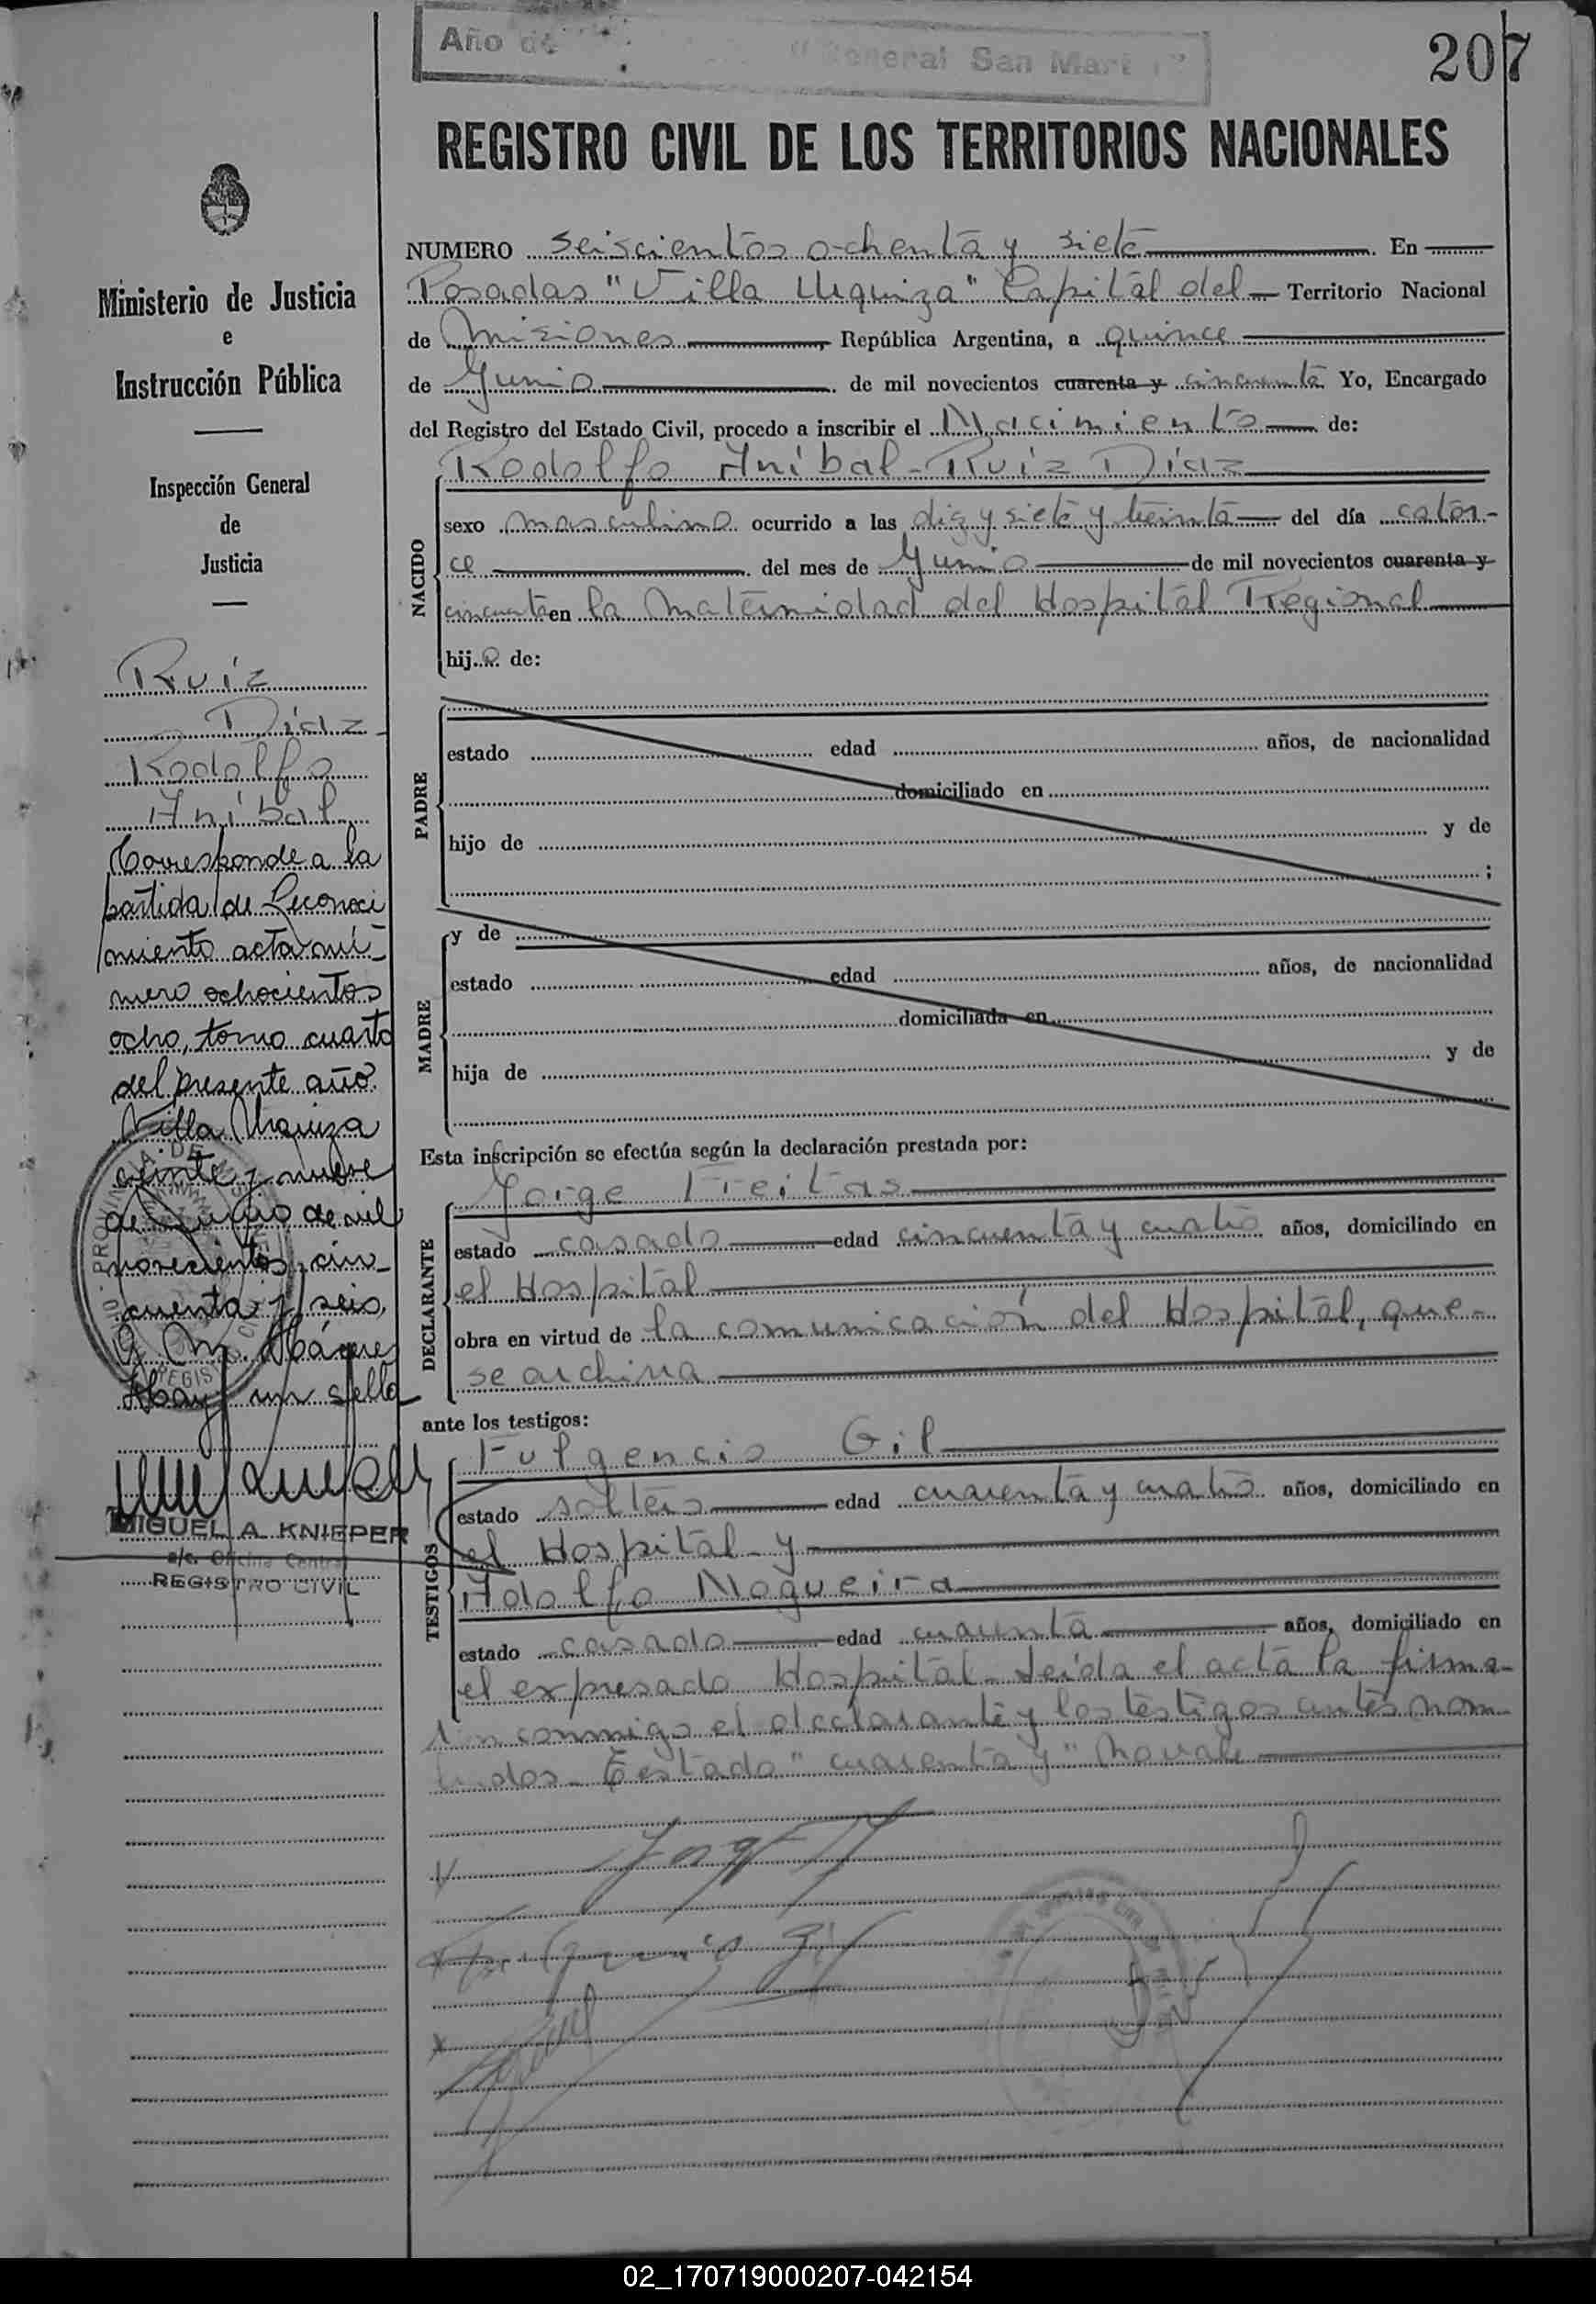 Año de "General San Martín"
207
REGISTRO CIVIL DE LOS TERRITORIOS NACIONALES
Ministerio de Justicia
e
Instrucción Pública
Inspección General
de
Justicia
Ruíz
Díaz
Rodolfo
Aníbal
Corresponde a la
partida de Reconoci
miento acta nú-
mero ochocientos
ocho, tomo cuarto
del presente año.
Villa Urquiza
veinte y nueve
de de mil
novecientos cin-
cuenta y seis,
Hay un sello
MIGUEL A. KNIEPER
a/c. Oficina Central
REGISTRO CIVIL
NUMERO seiscientos ochenta y siete En
Posadas "Villa Urquiza" Capital del Territorio Nacional
de Misiones República Argentina, a quince
de Junio de mil novecientos cuarenta y cincuenta Yo, Encargado
del Registro del Estado Civil, procedo a inscribir el Nacimiento de:
Rodolfo Aníbal Ruíz Díaz
NACIDO
sexo masculino ocurrido a las diez y siete y treinta del día cator-
ce del mes de Junio de mil novecientos cuarenta y
cincuenta en la Maternidad del Hospital Regional
hijo de:
PADRE
estado edad años, de nacionalidad
domiciliado en
hijo de y de
;
MADRE
y de
estado edad años, de nacionalidad
domiciliada en
hija de y de
Esta inscripción se efectúa según la declaración prestada por:
DECLARANTE
Jorge Freitas
estado casado edad cincuenta y cuatro años, domiciliado en
el Hospital
obra en virtud de la comunicación del Hospital, que
se archiva
ante los testigos:
TESTIGOS
Fulgencio Gil
estado soltero edad cuarenta y cuatro años, domiciliado en
el Hospital y
Adolfo Nogueira
estado casado edad cuarenta años, domiciliado en
el expresado Hospital. Leída el acta la firma-
ron conmigo el declarante y los testigos antes nom-
brados. Testado "cuarenta y" No vale
02_170719000207-042154